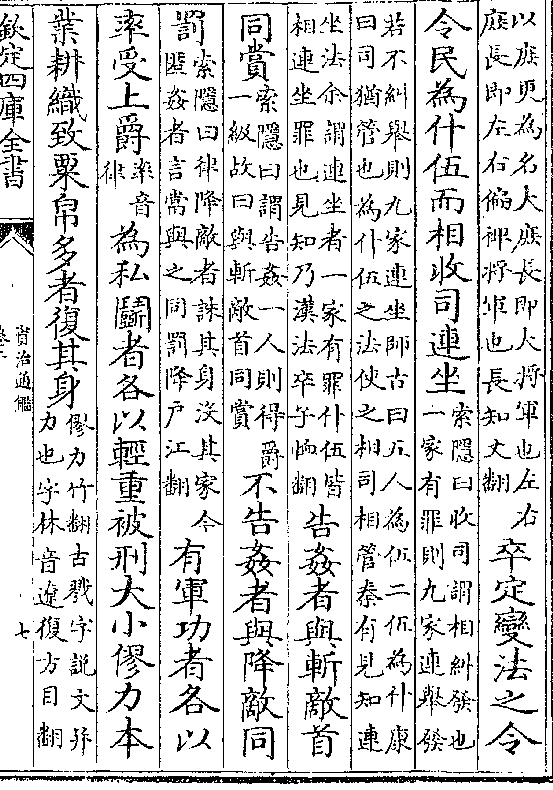 以庶更為名大庶長即大將軍也左右
庶長即左右偏裨將軍也長知丈翻
卒定變法之令
令民為什伍而相收司連坐
索隱曰收司謂相糾發也
一家有罪則九家連舉發
若不糾舉則九家連坐師古曰五人為伍二伍為什康
曰司猶管也為什伍之法使之相司相管秦有見知連
坐法余謂連坐者一家有罪什伍皆
相連坐罪也見知乃漢法卒子恤翻
告姦者與斬敵首
同賞
索隱曰謂告姦一人則得爵
一級故曰與斬敵首同賞
不告姦者與降敵同
罰
索隱曰律降敵者誅其身没其家今
匿姦者言當與之同罰降户江翻
有軍功者各以
率受上爵
率音
律
為私鬭者各以輕重被刑大小僇力本
業耕織致粟帛多者復其身
僇力竹翻古戮字説文并
力也字林音遼復方目翻
欽定四庫全書
資治通鑑
卷二
七